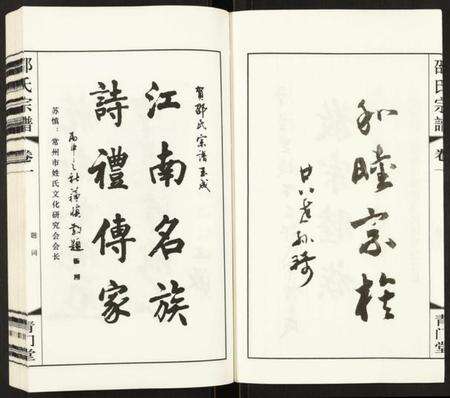 邵氏宗譜
卷一
青门堂
和睦宗族
廿八世孙琦
賀邵氏宗谱玉成
江南名族
詩禮傳家
丙申之秋蘇慎敬題
苏慎：常州市姓氏文化研究会会长
邵氏宗譜
卷一
题词
青门堂